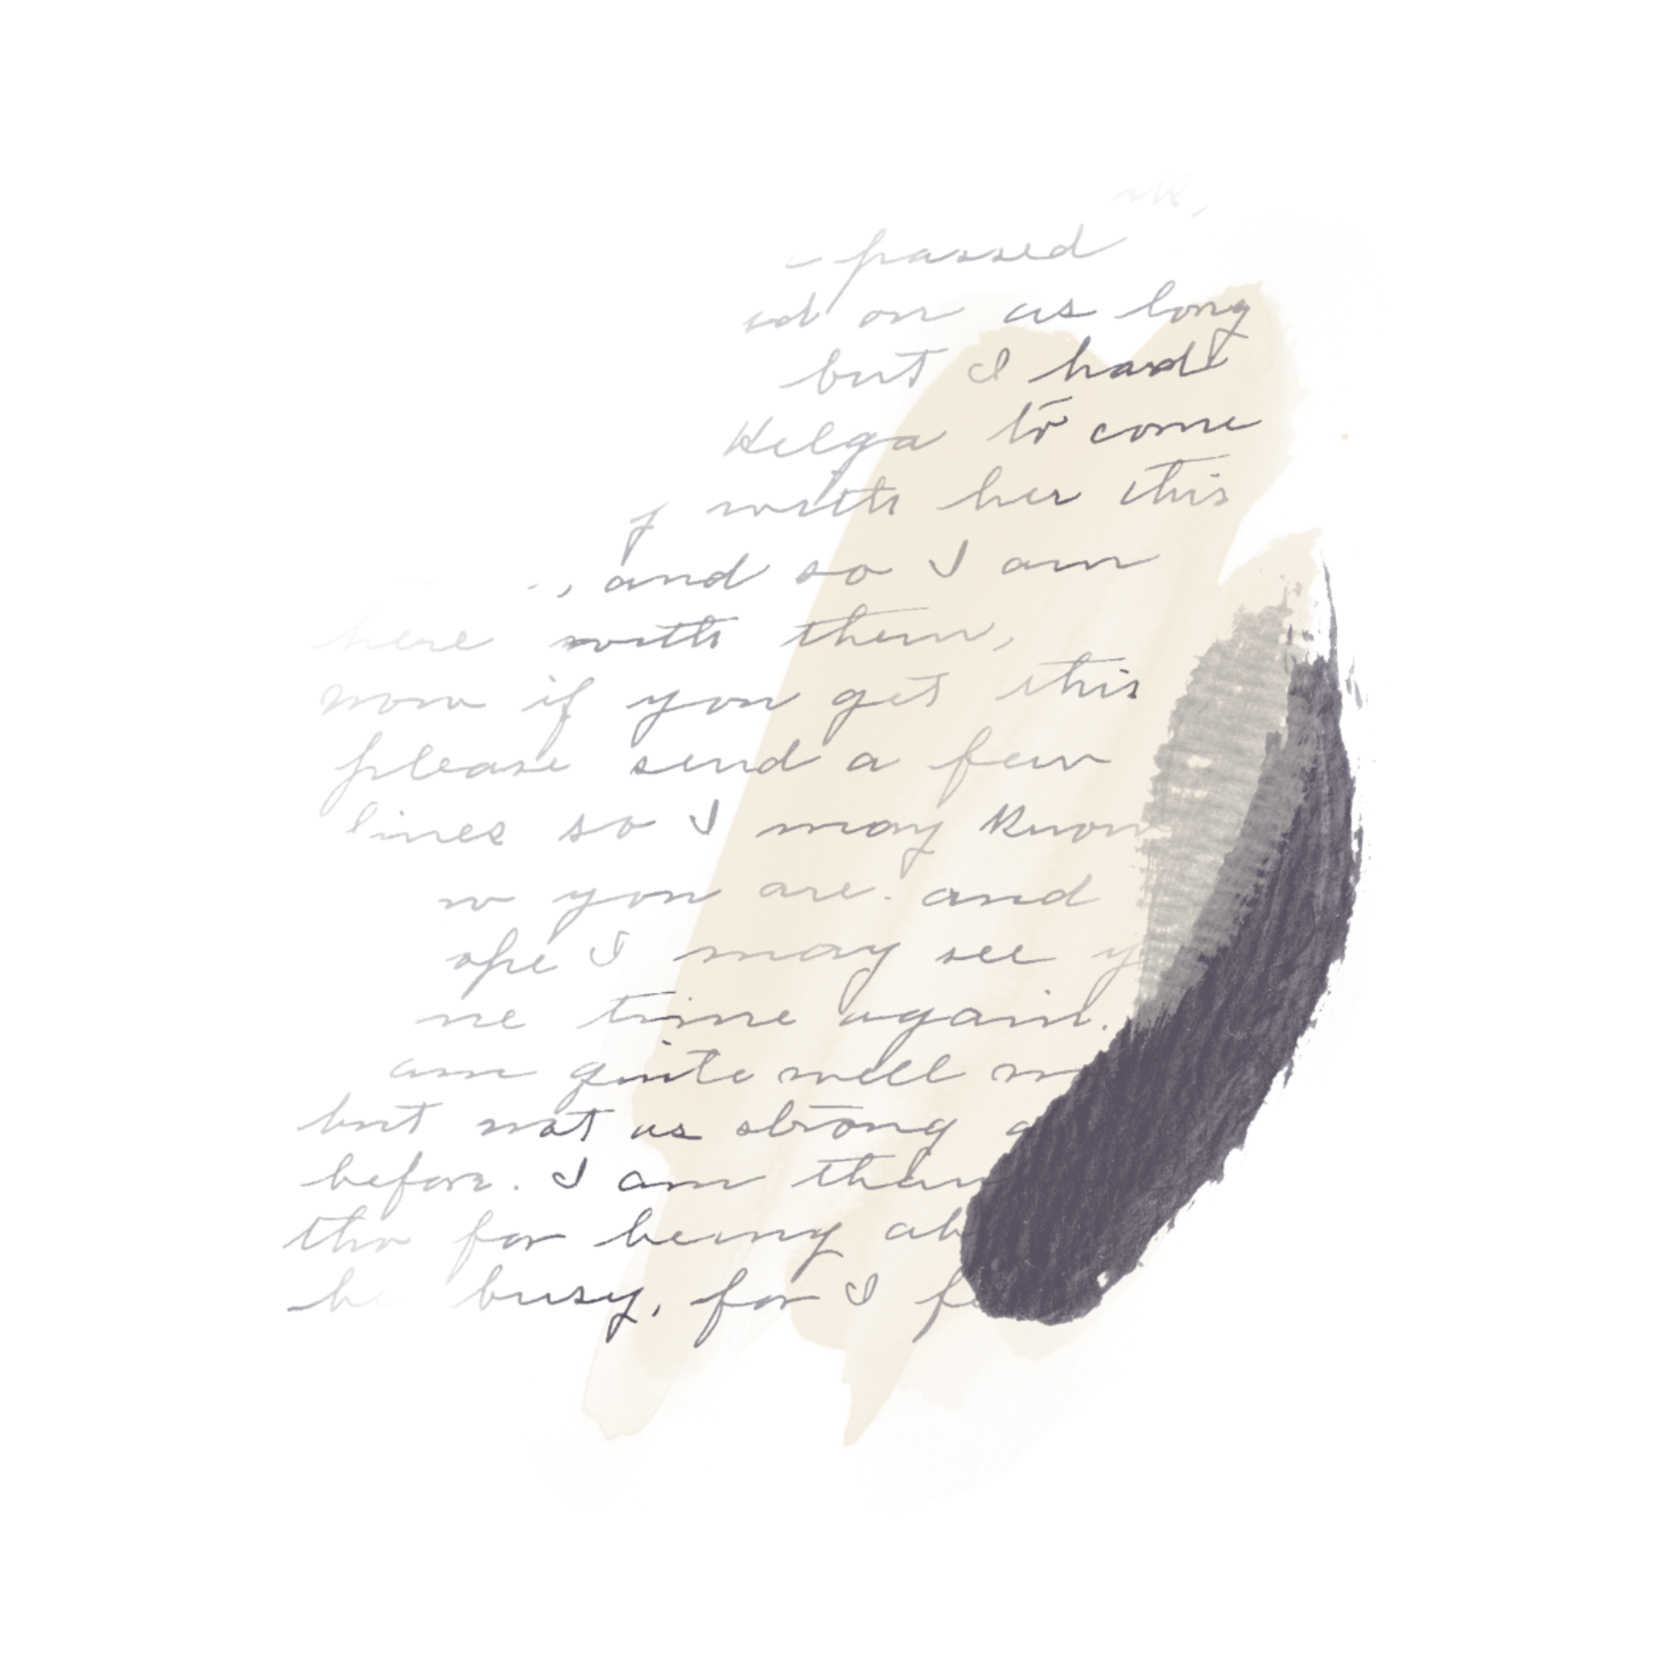 passed
on as long
but I had
Helga to come
with her this
, and so I am
here with them,
now if you get this
please send a few
lines so I may know
w you are. and
ope I may see y
me time again.
am quite well no
but not as strong a
before. I am than
tho for being ab
be busy, for I fe